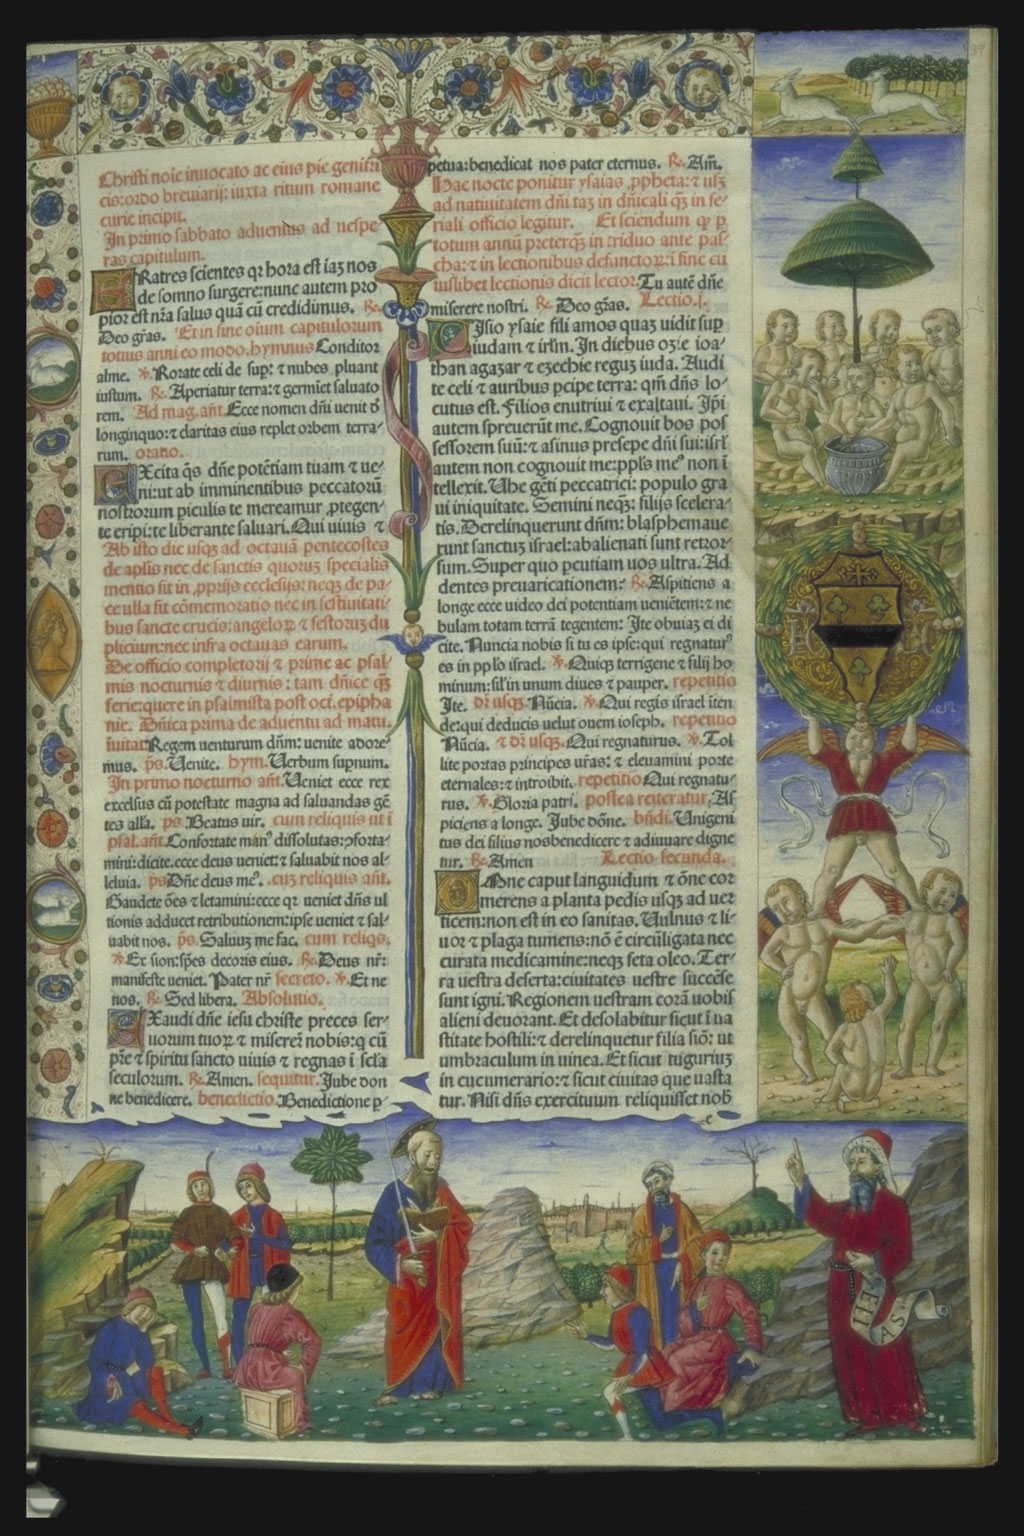 Christi noīe inuocato ac eius pie genitri
cis: ordo breuiarij: iuxta ritum romane
curie incipit.
In primo sabbato aduentus ad uespe
ras capitulum.
FRatres scientes qꝛ hora est iaꝫ nos
de somno surgere: nunc autem pro
pior est nr̄a salus quā cū credidimus. ℟.
Deo gr̄as. Et in fine oīum capitulorum
totius anni eo modo. hymnus Conditor
alme. ℣. Rorate celi de sup: ⁊ nubes pluant
iustum. ℟. Aperiatur terra: ⁊ germīet saluato
rem. Ad mag. an̄t. Ecce nomen dn̄i uenit d̄
longinquo: ⁊ claritas eius replet orbem terra-
rum. oratio.
EXcita q̄s dn̄e potētiam tuam ⁊ ue-
ni: ut ab imminentibus peccatorū
nostrorum piculis te mereamur ꝓtegen-
te eripi: te liberante saluari. Qui uiuis ⁊
Ab isto die usqꝫ ad octauā pentecostes
de aplis nec de sanctis quorum specialis
mentio fit in ꝓprijs ecclesijs: neqꝫ de pa-
ce ulla fit cōmemoratio nec in festiuitati-
bus sancte crucis: angeloꝝ ⁊ festorꝫ du
plicium: nec infra octauas earum.
De officio completorij ⁊ prime ac psal
mis nocturnis ⁊ diurnis: tam dn̄ice qꝫ
ferie: quere in psalmista post oct. epipha
nie. Dn̄ica prima de aduentu ad matu.
īuitat Regem uenturum dn̄m: uenite adore-
mus. ps. Uenite. hym. Uerbum supnum.
In primo nocturno an̄t. Ueniet ecce rex
excelsus cū potestate magna ad saluandas gē
tes all'a. ps. Beatus uir. cum reliquis ut ī
psal. an̄t. Confortate man⁹ dissolutas: ꝯforta-
mini: dicite. ecce deus ueniet: ⁊ saluabit nos al-
leluia. ps Dn̄e deus me⁹. cuꝫ reliquis an̄t.
Gaudete oēs ⁊ letamini: ecce qꝛ ueniet dn̄s ul
tionis adducet retributionem: ipse ueniet ⁊ sal-
uabit nos. ps. Saluuꝫ me fac. cum reliqs.
℣ Ex sion: spēs decoris eius. ℟. Deus nr̄:
manifeste ueniet. Pater nr̄ secreto. ℣. Et ne
nos. ℟ Sed libera. Absolutio.
EXaudi dn̄e iesu christe preces ser-
uorum tuoꝝ ⁊ miserē nobis: q cū
pr̄e ⁊ spiritu sancto uiuis ⁊ regnas ī scl'a
seculorum. ℟. Amen. sequitur. Jube don
ne benedicere. benedictio. Benedictione ꝑ-
petua: benedicat nos pater eternus. ℟. Am̄.
Hac nocte ponitur ysaias ꝓpheta: ⁊ usqꝫ
ad natiuitatem dn̄i taꝫ in dn̄icali qꝫ in fe-
riali officio legitur. Et sciendum qꝫ ꝑ
totum annū preterqꝫ in triduo ante pas-
cha: ⁊ in lectionibus defunctoꝝ: ī fine cu
iuslibet lectionis dicit lector. Tu autē dn̄e
miserere nostri. ℟. Deo gr̄as. Lectio. j.
UIsio ysaie filij amos quaꝫ uidit sup
iudam ⁊ irl'm. In diebus ozie ioa-
than agazar ⁊ ezechie reguꝫ iuda. Audi
te celi ⁊ auribus ꝑcipe terra: qm̄ dn̄s lo-
cutus est. Filios enutriui ⁊ exaltaui. Ip̄i
autem spreuerūt me. Cognouit bos pos
sessorem suū: ⁊ asinus presepe dn̄i sui: isrl'
autem non cognouit me: ppl's me⁹ non ī
tellexit. Uhe gēti peccatrici: populo gra
ui iniquitate. Semini neqꝫ: filijs scelera-
tis. Derelinquerunt dn̄m: blasphemaue
runt sanctuꝫ israel: abalienati sunt retror-
sum. Super quo ꝑcutiam uos ultra. Ad
dentes preuaricationem: ℟ Aspitiens a
longe ecce uideo dei potentiam ueniētem: ⁊ ne
bulam totam terrā tegentem: Ite obuiaꝫ ei di
cite. Nuncia nobis si tu es ipse: qui regnatur⁹
es in ppl'o israel. ℣. Quiqꝫ terrigene ⁊ filij ho
minum: sil' in unum diues ⁊ pauper. repetitio
Ite. dr̄ usqꝫ. Nūcia. ℣. Qui regis israel īten
de: qui deducis uelut ouem ioseph. repetitio
Nūcia. ⁊ dr̄ usqꝫ. Qui regnaturus. ℣. Tol
lite portas principes ur̄as: ⁊ eleuamini porte
eternales: ⁊ introibit. repetitio Qui regnatu-
rus. ℣. Gloria patri. postea reiteratur, As
piciens a longe. Jube dōne. bn̄di. Unigeni
tus dei filius nos benedicere ⁊ adiuuare digne
tur. ℟. Amen Lectio secunda.
OMne caput languidum ⁊ ōne cor
merens a planta pedis usqꝫ ad uer
ticem: non est in eo sanitas. Uulnus ⁊ li-
uor ⁊ plaga tumens: nō ē circūligata nec
curata medicamine: neqꝫ fota oleo. Ter-
ra uestra deserta: ciuitates uestre succēse
sunt igni. Regionem uestram corā uobis
alieni deuorant. Et desolabitur sicut ī ua
stitate hostili: ⁊ derelinquetur filia siō: ut
umbraculum in uinea. Et sicut tuguriuꝫ
in cucumerario: ⁊ sicut ciuitas que uasta
tur. Nisi dn̄s exercituum reliquisset nob̄
EIAS